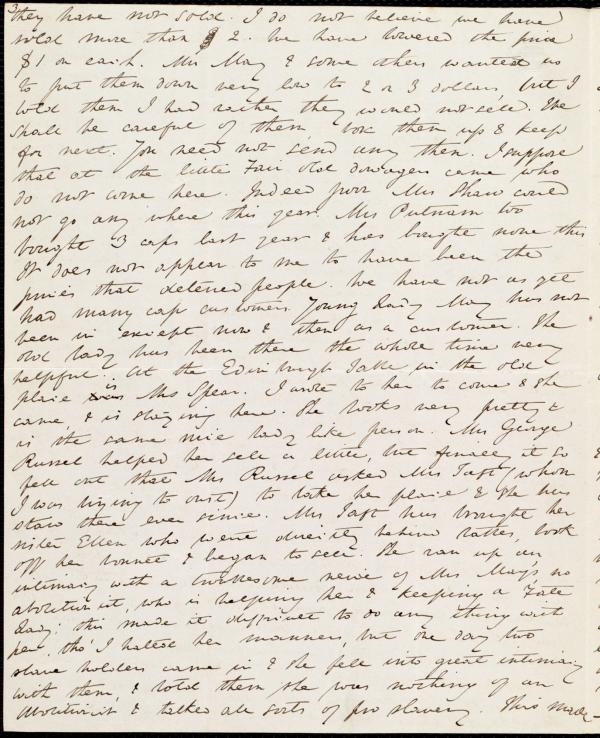 3
they have not sold. I do not believe we have
sold more than 2. We have lowered the price
$1 on each. Mrs May & some others wanted us
to put them down very low to 2 or 3 dollars, but I
told them I had rather they would not sell. We
shall be careful of them, box them up & keep
for next. You need not send any then. I suppose
that at the little Fair old dowagers came who
do not come here. Indeed poor Mrs Shaw could
not go any where this year. Mrs Putnam too
bought 3 caps last year & has bought none this
It does not appear to me to have been the
prices that deterred people. We have not as yet
had many cap customers. Young Lady May has not
been in except now & then as a customer. The
old lady has been there the whole time very
helpful. At the Edinburgh Table in the old
place is Mrs Spear. I wrote to her to come & she
came, & is staying here. She looks very pretty &
is the same nice lady like person. Mrs George
Russel helped her sell a little, but finally it so
fell out that Mrs Russel asked Mrs Taft (whom
I was trying to oust) to take her place & she has
staid there ever since. Mrs Taft has brought her
sister Ellen who went directly behind tables, took
off her bonnet & began to sell. She ran up an
intimacy with a niece of Mrs May's, no
abolitionist, who is helping her & keeping a
Lady; this made it difficult to do any thing with
her, tho' I hated her manners, but one day two
slave holders came in & she fell into great intimacy
with them, & told them she was nothing of an
abolitionist & talked all sorts of pro slavery. This made